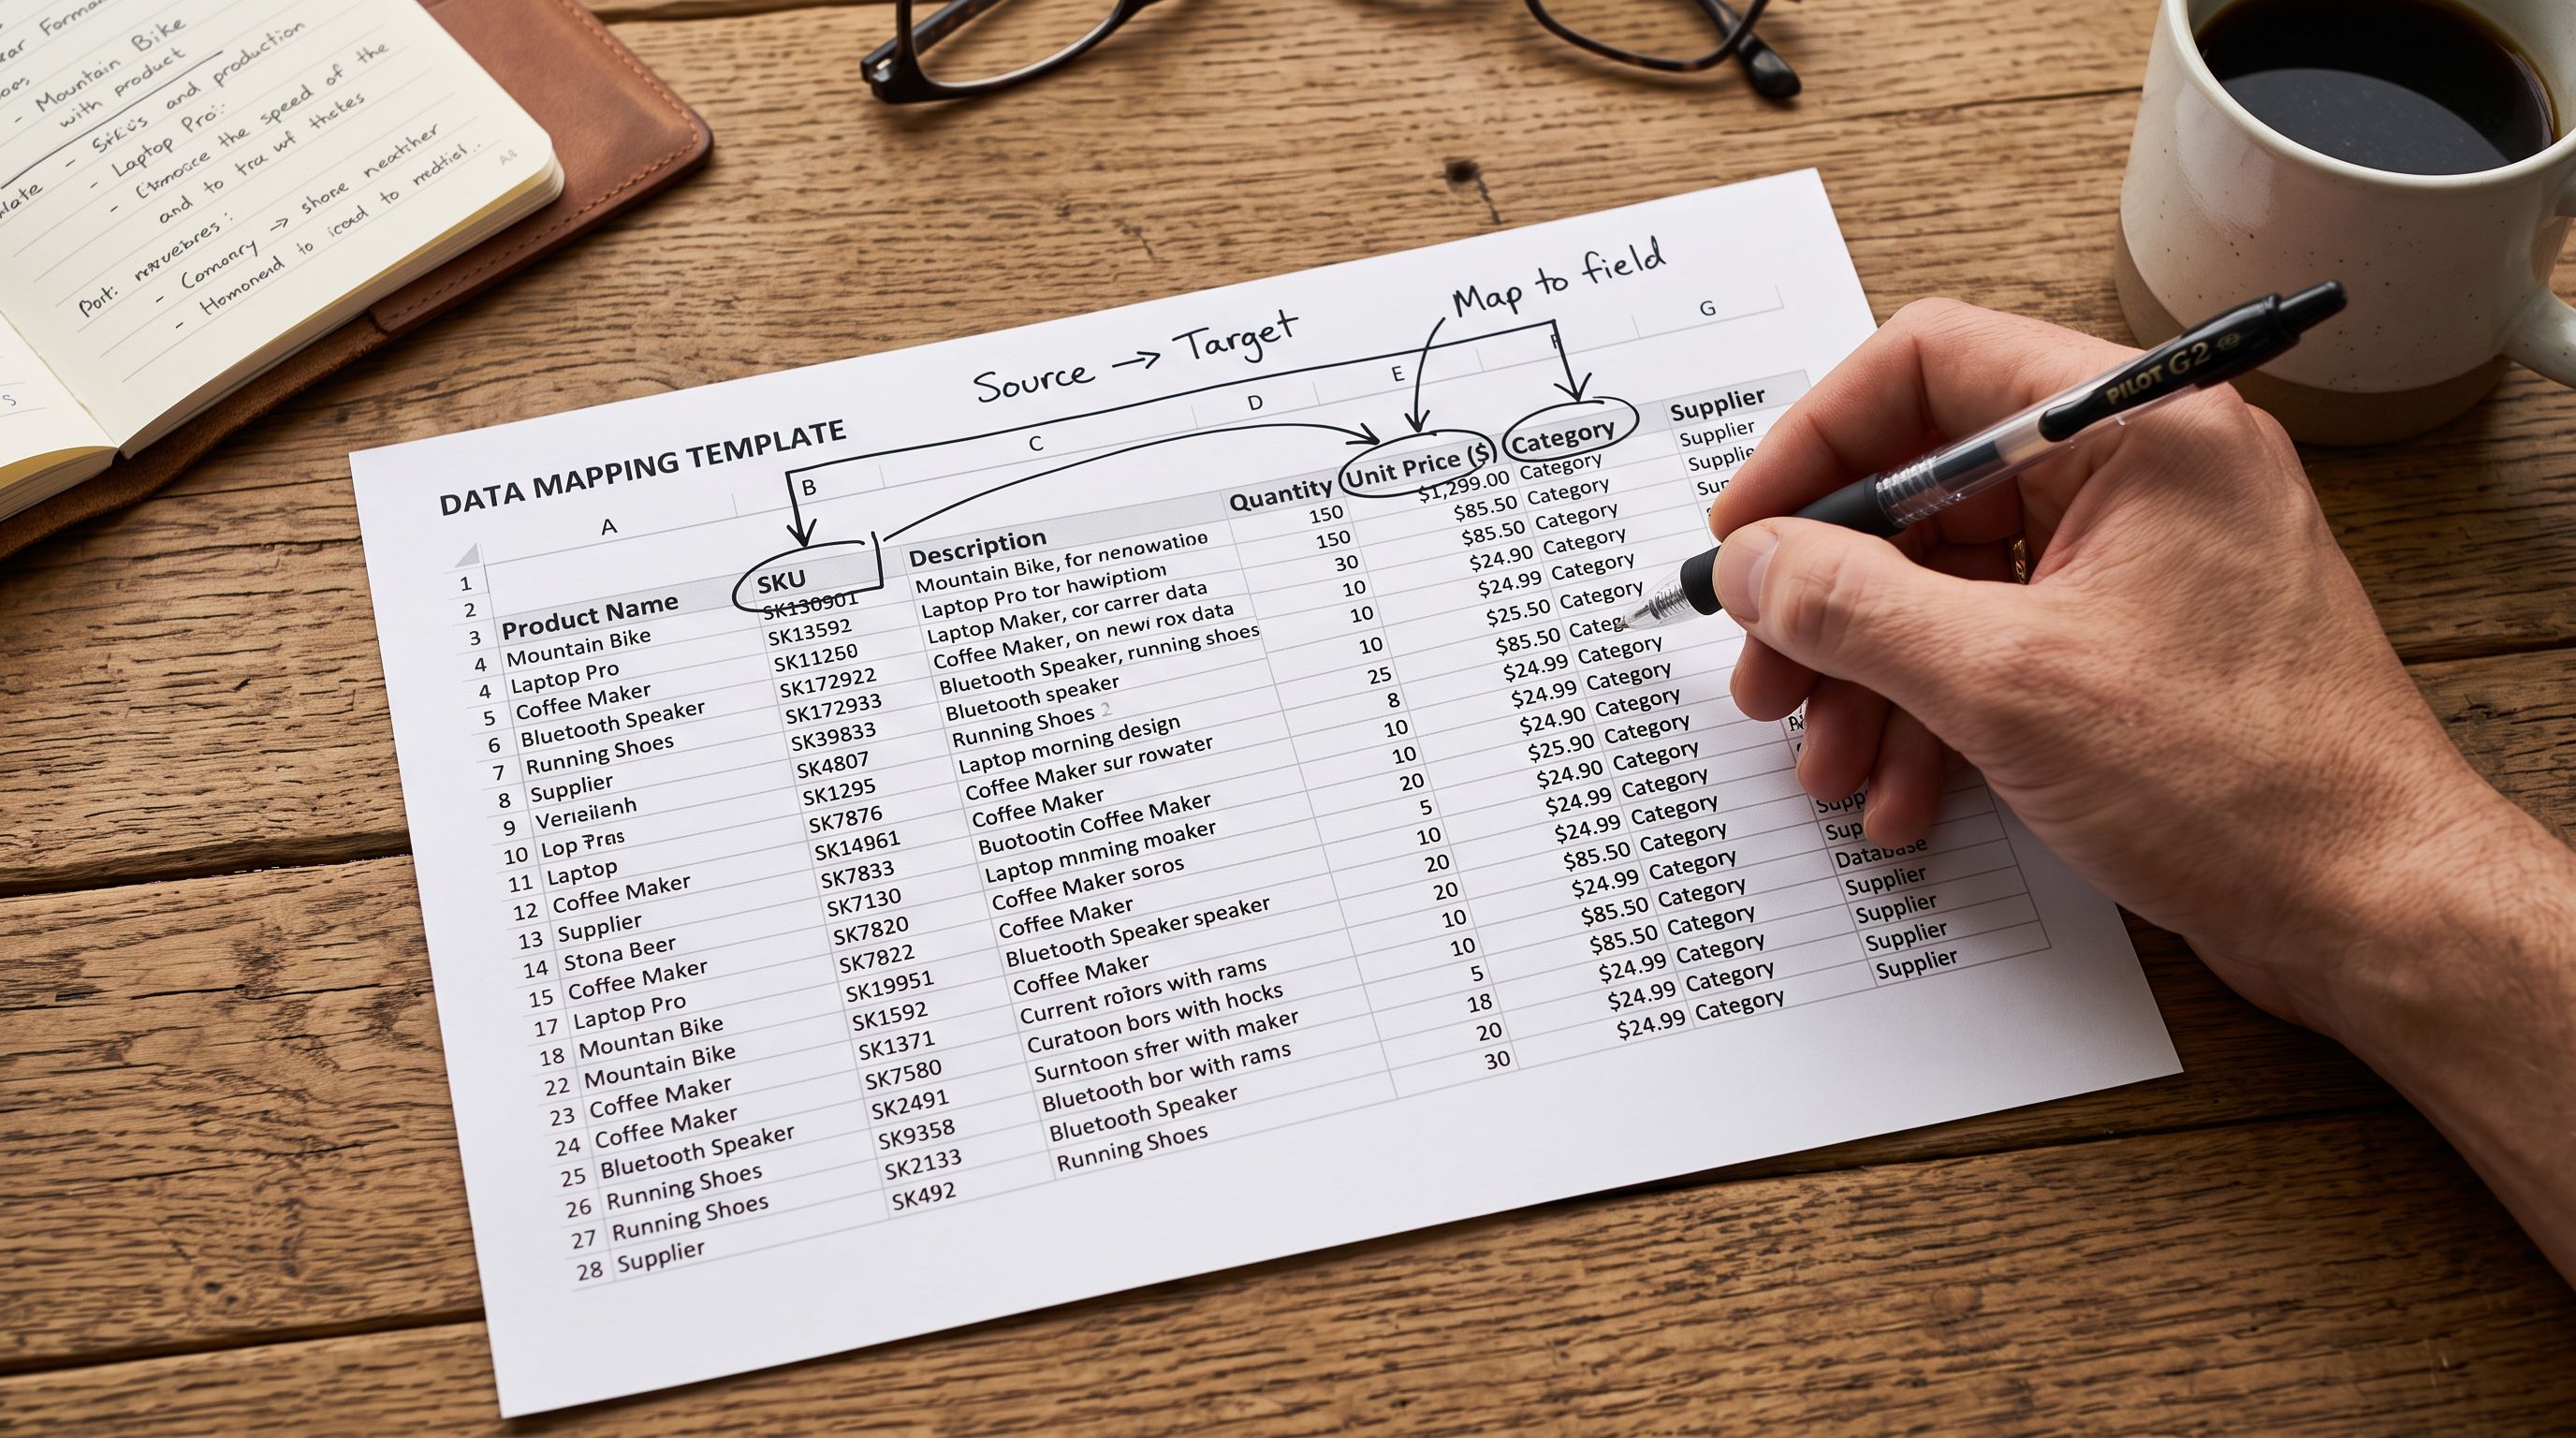 Mountain Bike
with product
and production
- Laptop Pro:
the speed of the
and to
Source → Target
Map to field
DATA MAPPING TEMPLATE
A B C D E F G
1
2 Product Name SKU Description Quantity Unit Price ($) Category Supplier
3 Mountain Bike SK130901 Mountain Bike, for 150 $1,299.00 Category Supplier
4 Laptop Pro SK13592 Laptop Pro tor hawiptiom 150 $85.50 Category
4 Coffee Maker SK11250 Laptop Maker, cor carrer data 30 $85.50 Category
5 Bluetooth Speaker SK172922 Coffee Maker, on newi rox data 10 $24.90 Category
6 Running Shoes SK172933 Bluetooth Speaker, running shoes 10 $24.99 Category
7 Supplier SK39833 Bluetooth speaker 10 $25.50 Category
8 SK4807 Running Shoes 2 25 $85.50
9 Lop SK1295 Laptop morning design 8 $24.99 Category
10 Laptop SK7876 Coffee Maker sur rowater 10 $24.99 Category
11 Coffee Maker SK14961 Coffee Maker 10 $24.90 Category
12 Supplier SK7833 Buotootin Coffee Maker 20 $25.90 Category
13 Stona Beer SK7130 Laptop mnming moaker 5 $24.90 Category
14 Coffee Maker SK7820 Coffee Maker soros 10 $24.99 Category
15 Laptop Pro SK7822 Coffee Maker 20 $24.99 Category
17 Mountan Bike SK19951 Bluetooth Speaker speaker 20 $85.50 Category Database
18 Mountain Bike SK1592 Coffee Maker 10 $24.99 Category Supplier
22 Coffee Maker SK1371 Current rotors with rams 10 $85.50 Category Supplier
23 Coffee Maker SK7580 Curatoon bors with hocks 5 $85.50 Category Supplier
24 Bluetooth Speaker SK2491 Surntoon sfrer with maker 18 $24.99 Category Supplier
25 Running Shoes SK9358 Bluetooth bor with rams 20 $24.99 Category
26 Running Shoes SK2133 Bluetooth Speaker 30 $24.99 Category
27 Supplier SK492 Running Shoes
28
PILOT G2